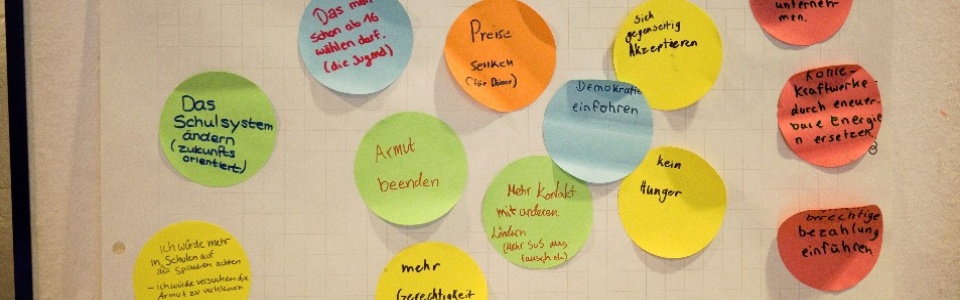 Das man
schon ab 16
wählen darf.
(die Jugend)
Preise
senken
(für Döner)
Sich
gegenseitig
Akzeptieren
unterneh-
men.
Das
Schulsystem
ändern
(zukunfts
orientiert)
Armut
beenden
Demokratie
einfohren
Kohle-
kraftwerke
durch eneuer-
bare Energie
n ersetzen.
Mehr Kontakt
mit anderen
Ländern
(Mehr SuS aus
tausch etc)
kein
Hunger
bezahlung
einführen
Ich würde mehr
in Schulen auf
die Sprachen achten
- ich würde versuchen die
Armut zu verkleinern
mehr
Gerechtigkeit